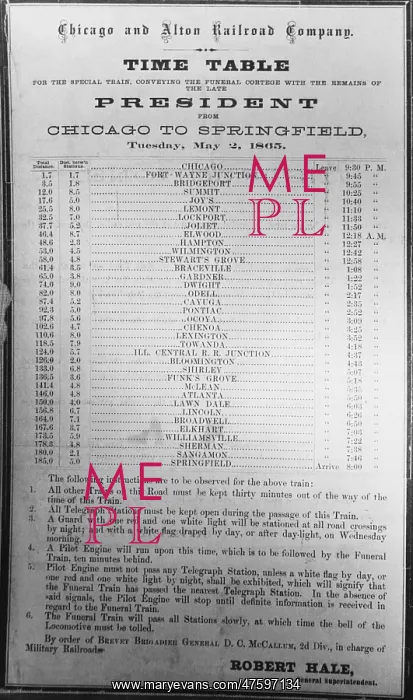 Chicago and Alton Railroad Company.
TIME TABLE
FOR THE SPECIAL TRAIN, CONVEYING THE FUNERAL CORTEGE WITH THE REMAINS OF
THE LATE
PRESIDENT
FROM
CHICAGO TO SPRINGFIELD,
Tuesday, May 2, 1865.
Total Distance. Dist. betw'n Stations
CHICAGO Leave 9:30 P. M.
1.7 1.7 FORT WAYNE JUNCTION 9:45 "
3.5 1.8 BRIDGEPORT 9:55 "
12.0 8.5 SUMMIT 10:25 "
17.6 5.0 JOY'S 10:40 "
25.5 8.0 LEMONT 11:10 "
32.5 7.0 LOCKPORT 11:33 "
37.7 5.2 JOLIET 11:50 "
46.4 8.7 ELWOOD 12:18 A. M.
48.6 2.3 HAMPTON 12:27 "
53.0 4.5 WILMINGTON 12:42 "
58.0 4.8 STEWART'S GROVE 12:58 "
61.4 3.5 BRACEVILLE 1:08 "
65.0 3.8 GARDNER 1:22 "
74.0 9.0 DWIGHT 1:52 "
82.0 8.0 ODELL 2:17 "
87.4 5.2 CAYUGA 2:35 "
92.3 5.0 PONTIAC 2:52 "
97.8 5.6 OCOYA 3:09 "
102.6 4.7 CHENOA 3:25 "
110.6 8.0 LEXINGTON 3:52 "
118.5 7.9 TOWANDA 4:18 "
124.0 5.7 ILL. CENTRAL R. R. JUNCTION 4:37 "
126.0 2.0 BLOOMINGTON 4:43 "
133.0 6.8 SHIRLEY 5:07 "
136.5 3.6 FUNK'S GROVE 5:18 "
141.4 4.8 McLEAN "
146.0 4.8 ATLANTA "
150.0 4.0 LAWN DALE 6:03 "
156.8 6.7 LINCOLN "
164.0 7.1 BROADWELL "
167.6 3.7 ELKHART "
173.5 5.9 WILLIAMSVILLE 7:22 "
178.3 4.8 SHERMAN 7:38 "
180.0 2.1 SANGAMON 7:46 "
185.0 5.0 SPRINGFIELD Arrive 8:00 "
The following instructions are to be observed for the above train:
1. All other Trains on this Road must be kept thirty minutes out of the way of the
time of this Train.
2. All Telegraph Stations must be kept open during the passage of this Train.
3. A Guard with one red and one white light will be stationed at all road crossings
by night; and with a white flag draped by day, or after day-light, on Wednesday
morning.
4. A Pilot Engine will run upon this time, which is to be followed by the Funeral
Train, ten minutes behind.
5. Pilot Engine must not pass any Telegraph Station, unless a white flag by day, or
one red and one white light by night, shall be exhibited, which will signify that
the Funeral Train has passed the nearest Telegraph Station. In the absence of
said signals, the Pilot Engine will stop until definite information is received in
regard to the Funeral Train.
6. The Funeral Train will pass all Stations slowly, at which time the bell of the
Locomotive must be tolled.
By order of BREVET BRIGADIER GENERAL D. C. McCALLUM, 2d Div., in charge of
Military Railroads.
ROBERT HALE,
General Superintendent.
ME
PL
ME
PL
www.maryevans.com/47597134